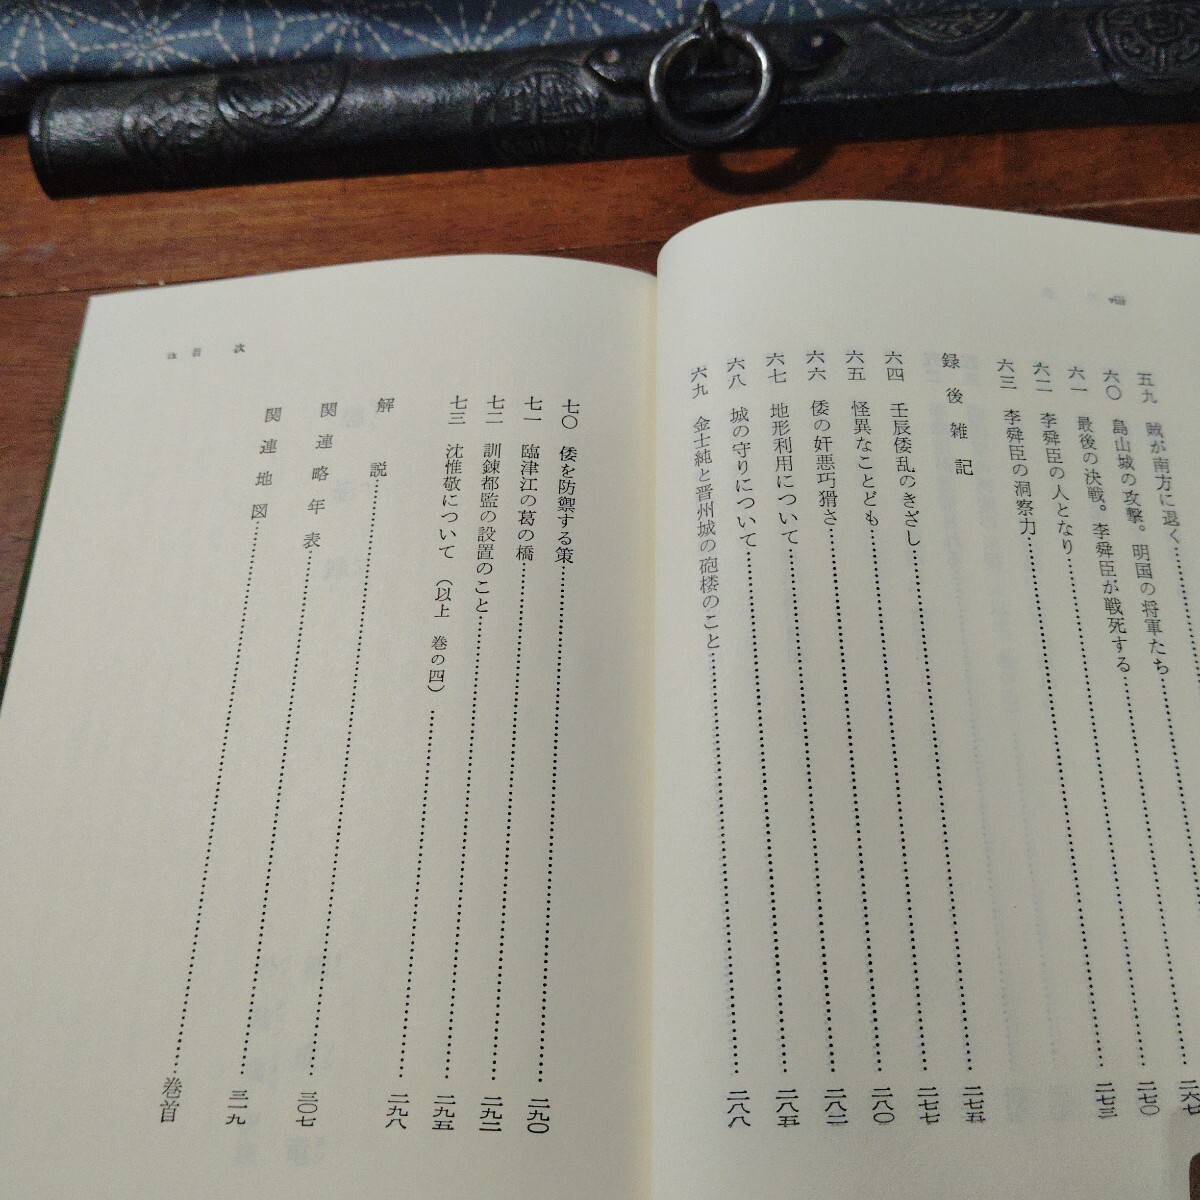 五九 賊が南方に退く
六〇 島山城の攻撃。明国の将軍たち
六一 最後の決戦。李舜臣が戦死する……二六七
六二 李舜臣の人となり……二七〇
六三 李舜臣の洞察力……二七三
録後雑記
六四 壬辰倭乱のきざし……二七五
六五 怪異なことども……二七七
六六 倭の奸悪巧猾さ……二八〇
六七 地形利用について……二八二
六八 城の守りについて……二八五
六九 金士純と晋州城の砲楼のこと……二八八
目次
七〇 倭を防禦する策……二九〇
七一 臨津江の葛の橋……二九二
七二 訓練都監の設置のこと……二九五
七三 沈惟敬について（以上 巻の四）……二九八
解説……三〇七
関連略年表……三一九
関連地図……巻首